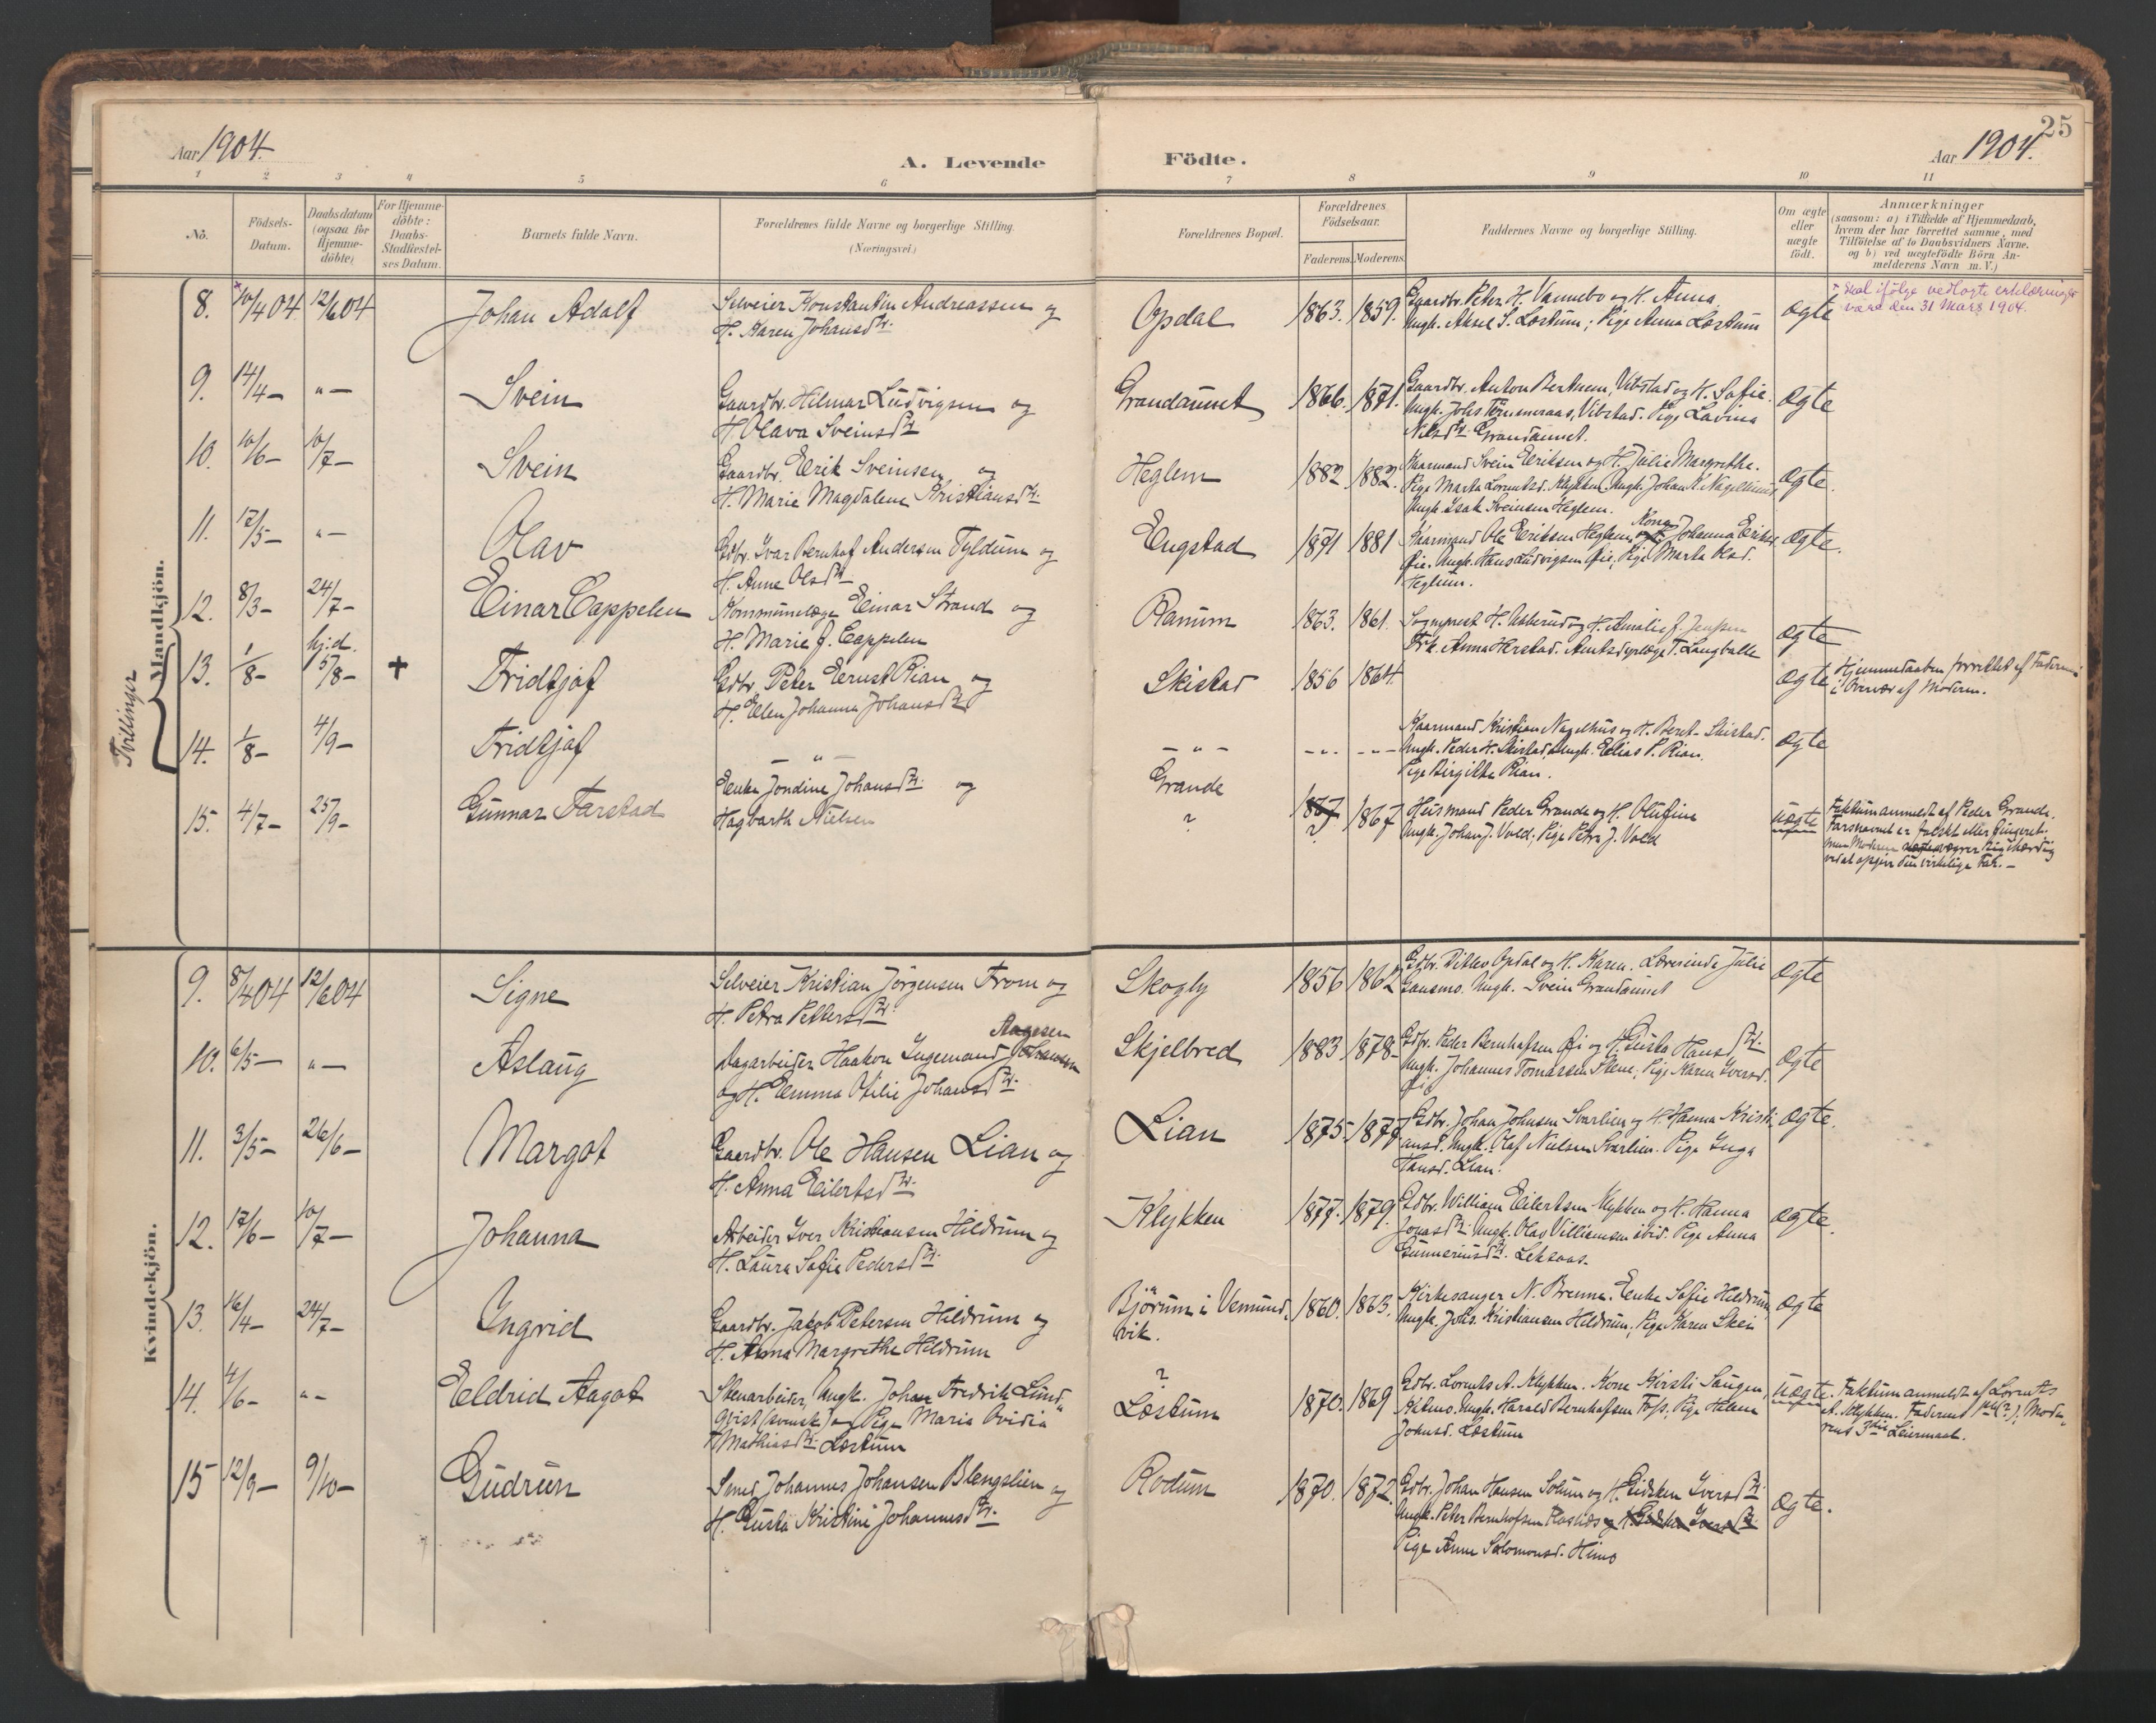 Aar 1904.
A. Levende Födte.
25
Aar 1904.
1 2 3 4 5 6 7 8 9 10 11
No.
Födsels-Datum.
Daabsdatum (ogsaa for Hjemme-döbte)
For Hjemme-döbte: Daabs-Stadfæstel-ses Datum.
Barnets fulde Navn.
Forældrenes fulde Navne og borgerlige Stilling. (Næringsvei.)
Forældrenes Bopæl.
Forældrenes Födselsaar.
Faderens. Moderens.
Faddernes Navne og borgerlige Stilling.
Om ægte eller uægte födt.
Anmærkninger
(saasom: a) i Tilfælde af Hjemmedaab,
hvem der har forrettet samme, med
Tilföielse af to Daabsvidners Navne.
og b) ved uægtefödte Börn An-
melderens Navn m. V.)
Mandkjön.
8. 10/4 04 12/6 04 Johan Adolf
Selveier Konstantin Andreassen og
H. Karen Johansdtr.
Opdal 1863. 1859.
Gaardbr. Peter H. Vannebo og H. Anna.
Ungk. Aksel S. Læstum; Pige Anna Læstum
ægte
+ Skal ifølge vedlagte erklæringer
være den 31 Mars 1904.
9. 14/4 - " - Svein
Gaardbr. Hilmar Ludvigsen og
H. Olava Sveinsdtr
Grandaunet 1866. 1871.
Gaardbr. Anton Berksen, Vibstad og H. Sofie.
Ungk. Johs Vibstad. Pige Lavina
Nilsdtr. Grandaunet.
ægte
10. 10/6 - 10/7 - Svein
Gaardbr. Erik Sveinsen og
H. Marie Magdalena Kristiansdtr.
Heglem 1882 1882.
Kaarmand Svein Eriksen og H. Julie Margrethe.
Pige Marta Lorentsd. Klykken. Ungk. Johan K. Nagelhus
Ungk. Isak Sveinsen Heglem.
ægte.
11. 12/5 - " - Olav
Gdbr. Ivar Bernhof Andersen Tyldum og
H. Anne Olsdtr
Engstad 1871 1881
Kaarmand Ole Eriksen Heglem, Kone Johanna Eriksd.
Øie. Ungk. Hans Ludvigsen Øie, Pige Marta Olsd.
Heglum.
ægte.
12. 8/3 - 24/7 - Einar Cappelen
Kommunelæge Einar Strand og
H. Marie f. Cappelen
Ranum 1863. 1861.
Sogneprest H. Asbersen og H. Amalie f. Jenssen
Frk. Anna Herstad. Amtsdyrlæge T. Langballe
ægte
Tvillinger
13. 1/8 - hj.d. 5/8 - + Fridtjof
Gdbr. Peter Ernst Rian og
H. Ellen Johanna Johansdtr
Skistad 1856 1864.
ægte
Hjemmedaaben forrettet af Faderen
i Overvær af Moderen.
14. 1/8 - 4/9 - Fridtjof
- " -
- " -
Kaarmand Kristian Nagelhus og H. Beret - Skistad.
Ungk. Peder H. Skistad, Ungk. Elias P. Rian.
Pige Birgitte Rian.
ægte
15. 4/7 - 25/9 - Gunnar Farstad
Enke Jondine Johansdtr. og
Hagbarth Nielsen
Grande
?
1867 ? 1867
Husmand Peder Grande og H. Olufine
Ungk. Johan J. Vold; Pige Petra J. Vold
uægte
Faktum anmeldt af Peder Grande.
Farsnavnet er falskt eller fingeret.
men Moderen vægrer sig
ved at opgive den virkelige Far. -
Kvindekjön.
9. 8/4 04 12/6 04 Signe
Selveier Kristian Jörgensen From og
H. Petra Pettersdtr.
Skogly 1856 1862
Gdbr. Ditlev Opdal og H. Karen. Lærerinde Julie
Gansmo. Ungk. Svein Grandaunet
ægte
10. 6/5 - " - Aslaug
Dagarbeider Haakon Ingemand Johansen Aagesen
og H. Emma Otilie Johansdtr.
Skjelbred 1883 1878-
Gdbr. Peder Bernhofsen Øi og H. Gusta Hansdtr.
Ungk. Johannes Tomassen Flene; Pige Karen Iversd.
Øie
ægte
11. 3/5 - 26/6 - Margot
Gaardbr. Ole Hansen Lian og
H. Anna Eilertsdtr.
Lian 1875 1877
Gdbr. Johan Johnsen Svarlien og H. Hanna Kristi-
ansd. Ungk. Olaf Nielsen Svarlien. Pige Inga
Hansd. Lian.
ægte.
12. 17/6 - 10/7 - Johanna
Arbeider Iver Kristiansen Hildrum og
H. Laura Sofie Pedersdtr.
Klykken 1877. 1879.
Gdbr. William Eilertsen Klykken og H. Hanna
Jonasdtr. Ungk. Olav Villiamsen ibid. Pige Anna
Gunneriusdtr. Leksaas.
ægte.
13. 16/4 - 24/7 - Ingrid
Gaardbr. Jakob Petersen Hildrum og
H. Anna Margrethe Hildrum
Björum i Vemund-
vik.
1860. 1863.
Kirkesanger N. Brenne. Enke Sofie Hildrum,
Ungk. Johs. Kristiansen Hildrum; Pige Karen Skei
ægte
14. 4/6 - " - Eldrid Aagot
Stenarbeider, Ungk. Johan Fredrik Lund-
qvist (svensk) og Pige Maria Ovidia
Mathiasdtr. Læstum
?
Læstum
1870. 1869
Gdbr. Lorents A. Klykken. Kone Kirsti Saugen,
Himo. Ungk. Harald Bernhofsen Foss, Pige Helene
Johnsd. Læstum
uægte.
Faktum anmeldt af Lorents
A. Klykken. Faderens 1ste (?), Mode-
rens 3die Leiermaal.
15 12/9 - 9/10 - Gudrun
Smed Johannes Johansen Blengslien og
H. Gusta Kristine Johannesdtr.
Rodum 1870. 1872.
Gdbr. Johan Hansen Solum og H. Eidsken Iversdtr.
Ungk. Peter Bernhofsen
Pige Anne Salomonsd. Himo
ægte.